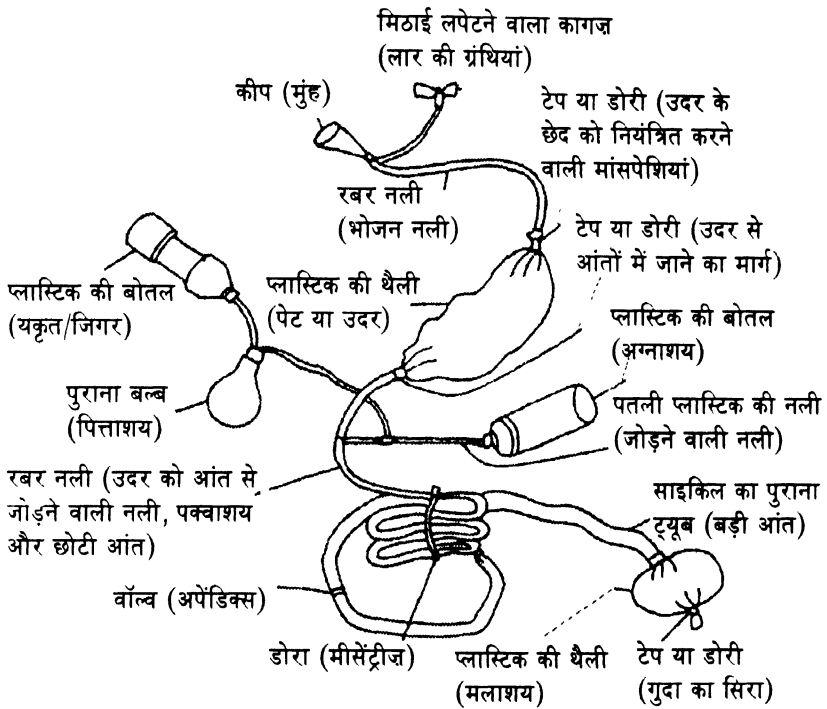 मिठाई लपेटने वाला कागज़
(लार की ग्रंथियां)
कीप (मुंह)
टेप या डोरी (उदर के
छेद को नियंत्रित करने
वाली मांसपेशियां)
रबर नली
(भोजन नली)
टेप या डोरी (उदर से
आंतों में जाने का मार्ग)
प्लास्टिक की बोतल
(यकृत/जिगर)
प्लास्टिक की थैली
(पेट या उदर)
प्लास्टिक की बोतल
(अग्नाशय)
पुराना बल्ब
(पित्ताशय)
पतली प्लास्टिक की नली
(जोड़ने वाली नली)
रबर नली (उदर को आंत से
जोड़ने वाली नली, पक्वाशय
और छोटी आंत)
साइकिल का पुराना
ट्यूब (बड़ी आंत)
वॉल्व (अपेंडिक्स)
डोरा (मीसेंट्रीज़)
प्लास्टिक की थैली
(मलाशय)
टेप या डोरी
(गुदा का सिरा)